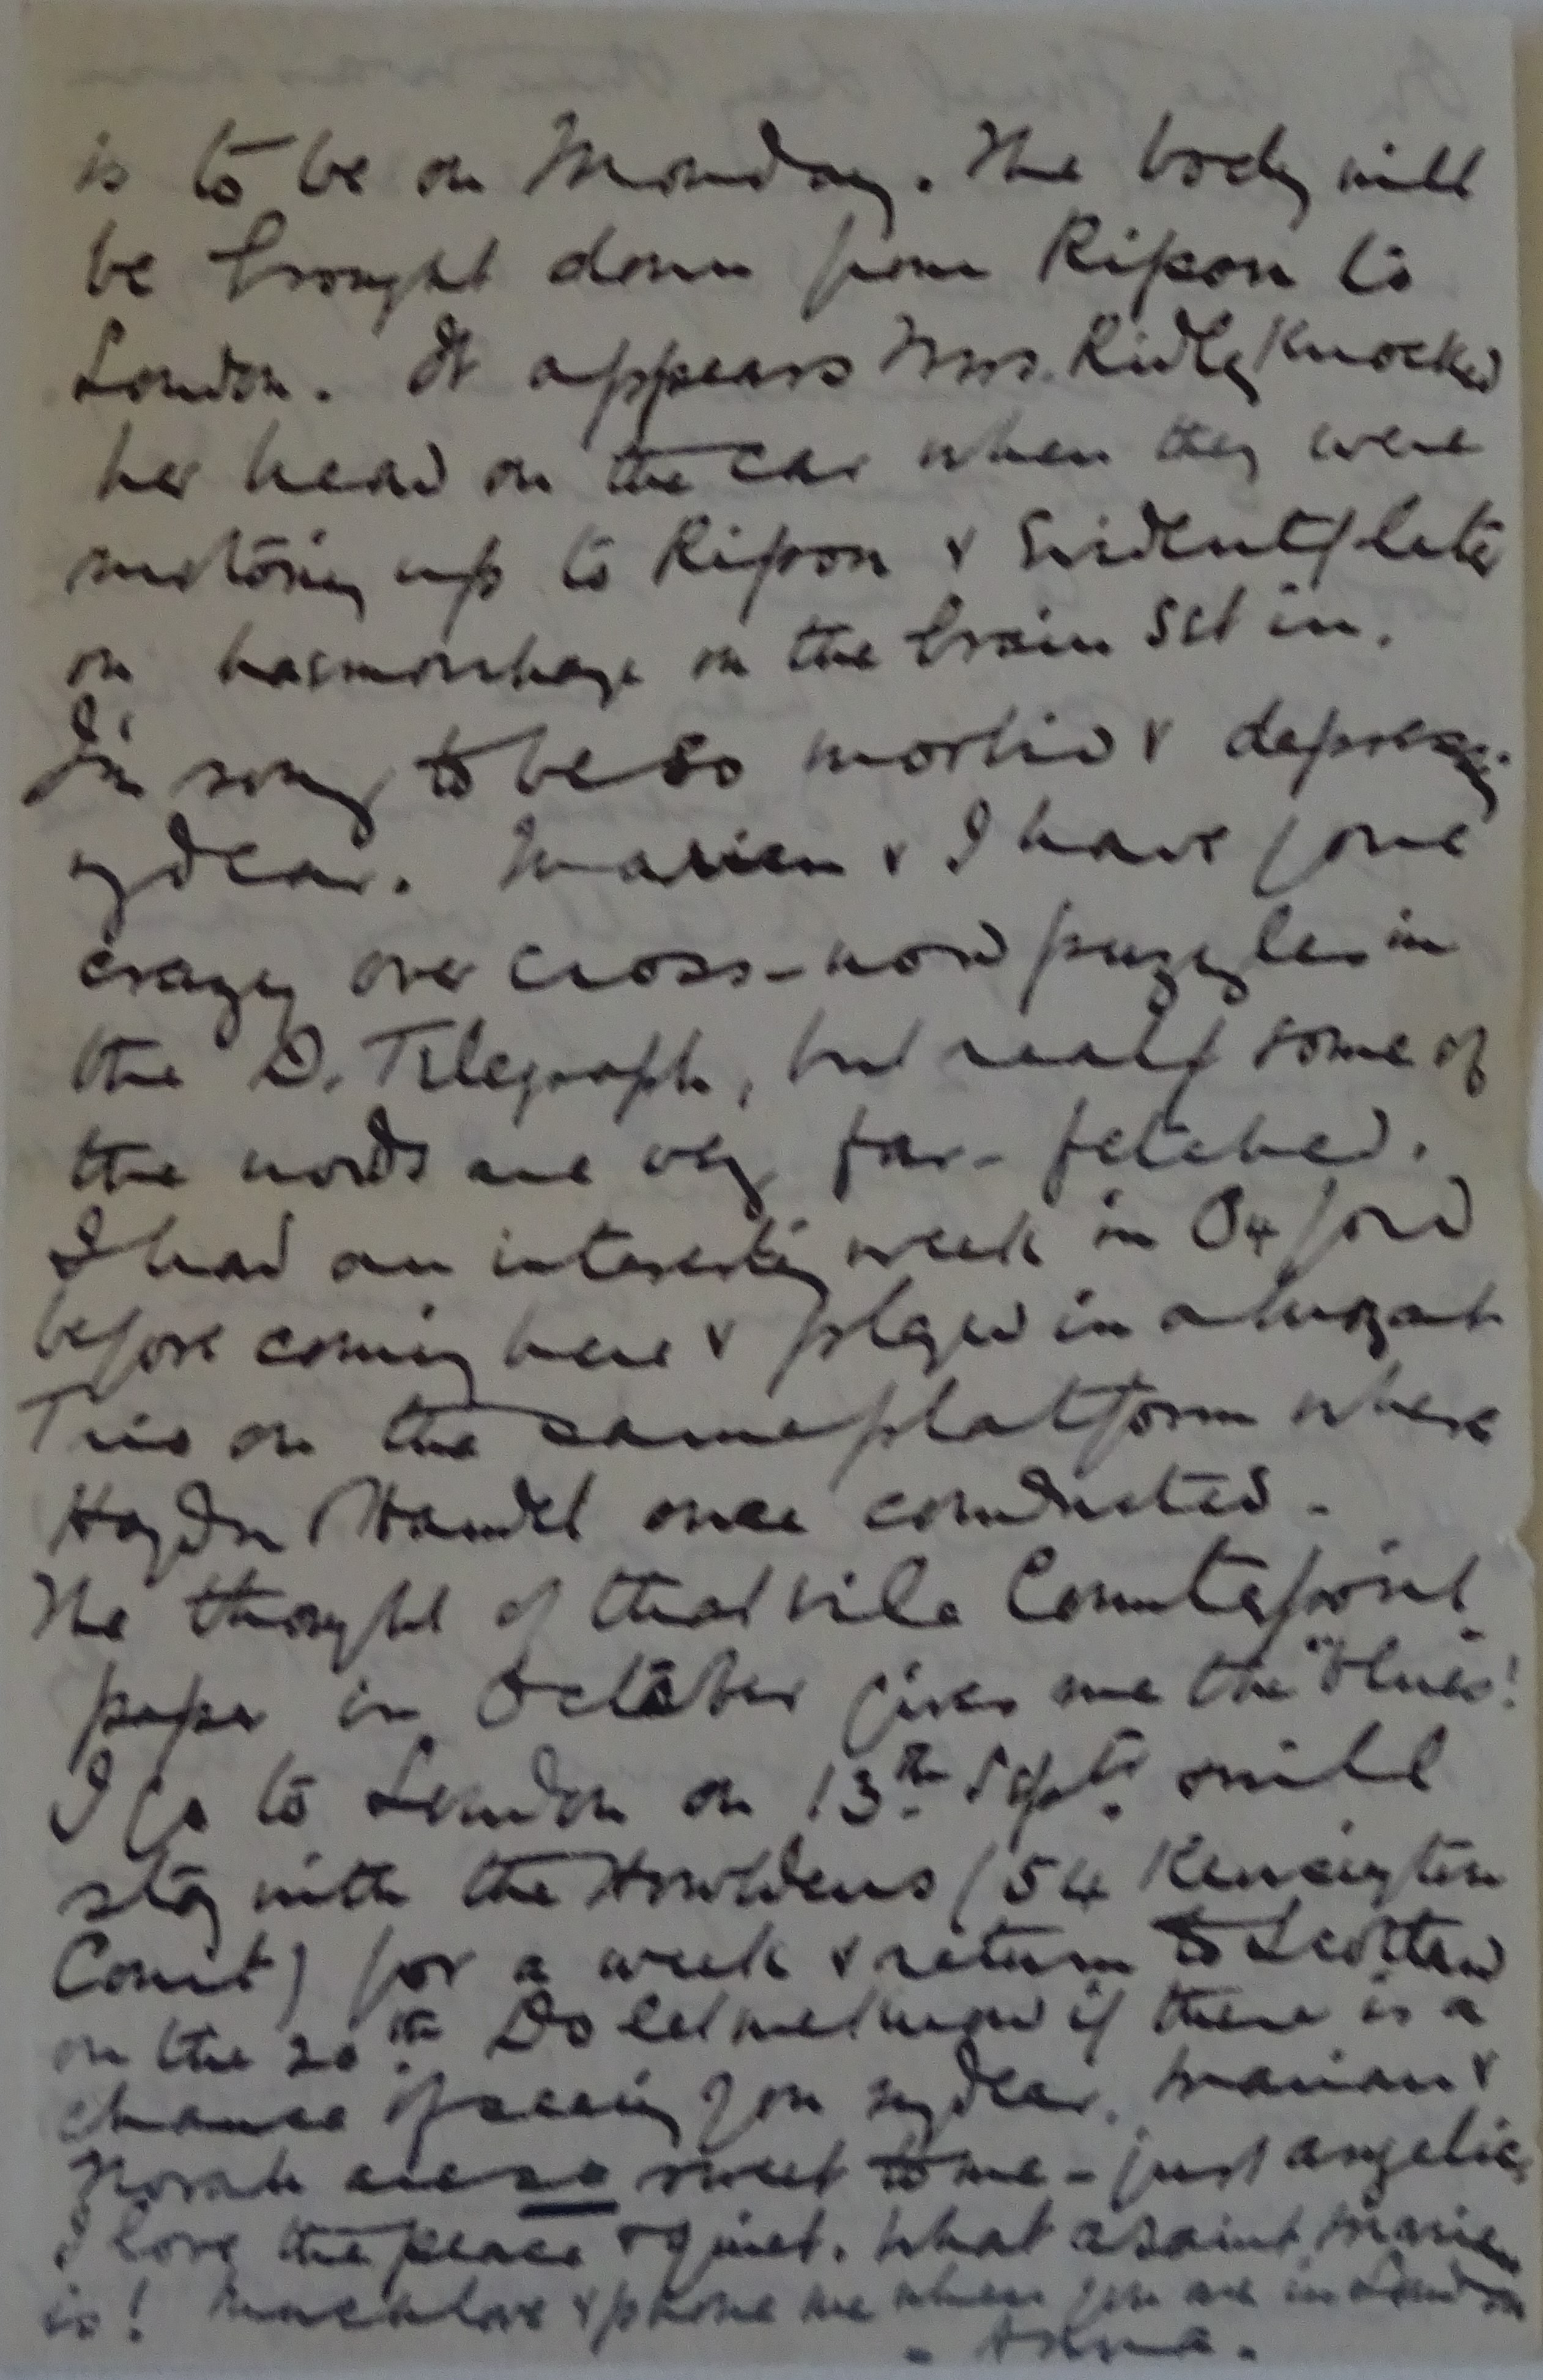 is to be on Monday. The body will
be brought down from Ripon to
London. It appears Mrs. Ridley knocked
her head on the car when they were
motoring up to Ripon & evidently later
on haemorrhage on the brain set in.
I'm sorry to be so morbid & depressing
my dear. Marian & I have gone
crazy over cross-word puzzles in
the D. Telegraph, but really some of
the words are very far-fetched.
I had an interesting week in Oxford
before coming here & played in a Mozart
Trio on the same platform where
Haydn & Handel once conducted -
The thought of that vile Counterpoint
paper in October gives me the "blues!
I go to London on 13th Sept. & will
stay with the (54 Kensington
Court) for a week & return to Scotland
on the 20th. Do let me know if there is a
chance of seeing you my dear. Marian &
Norah are so sweet to me - just angelic,
I love the peace & quiet. What a saint Marian
is! Much love & phone me when you are in London
-